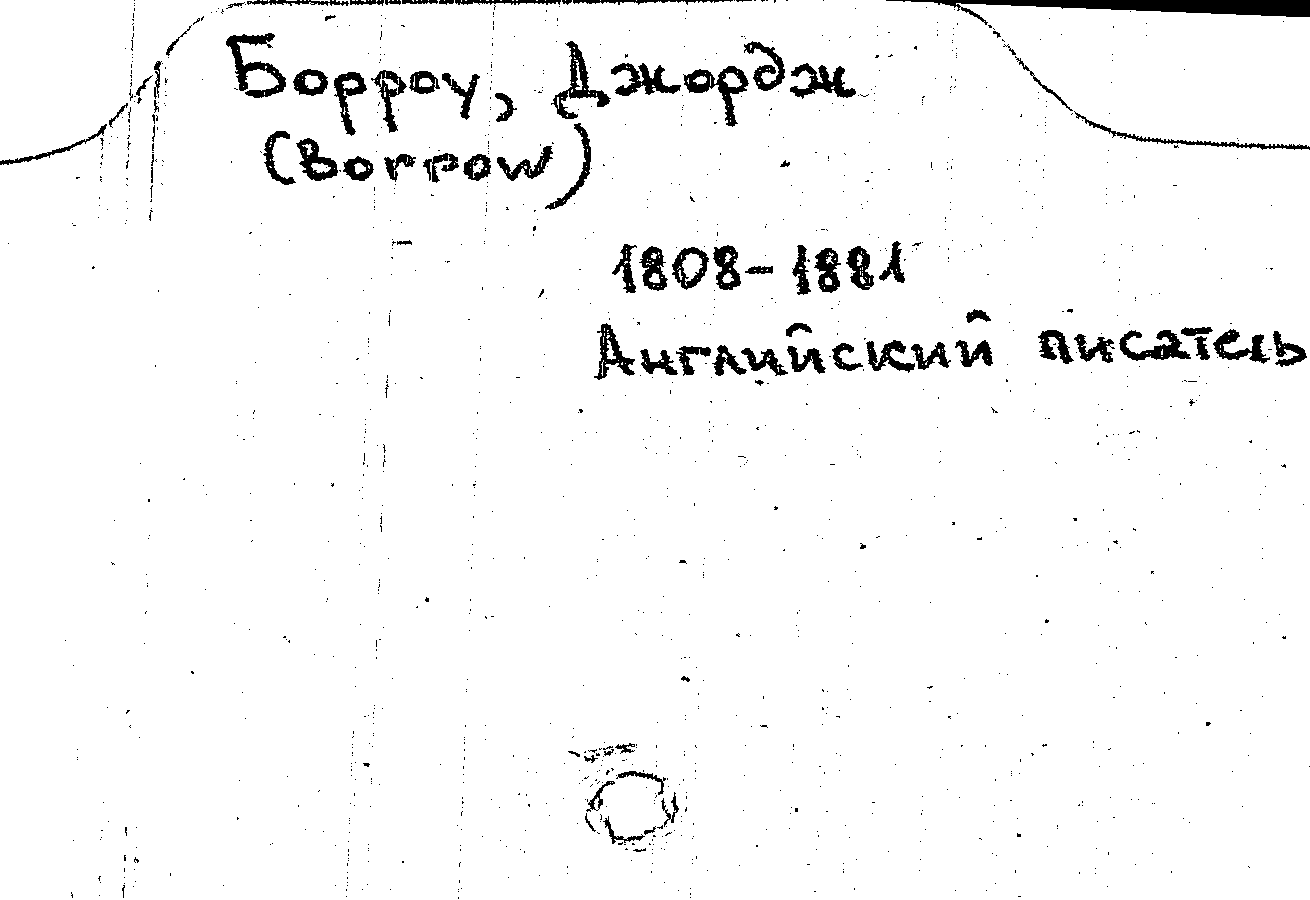 Борроу, Джордж
(Borrow)
1808-1881
Английский писатель